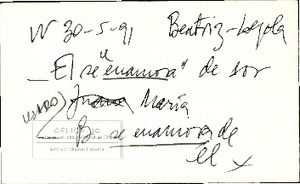 W 30-5-91 Beatriz-Loyola
_ El se "enamora" de sor
USADO) Juana María
B se enamora de
él x